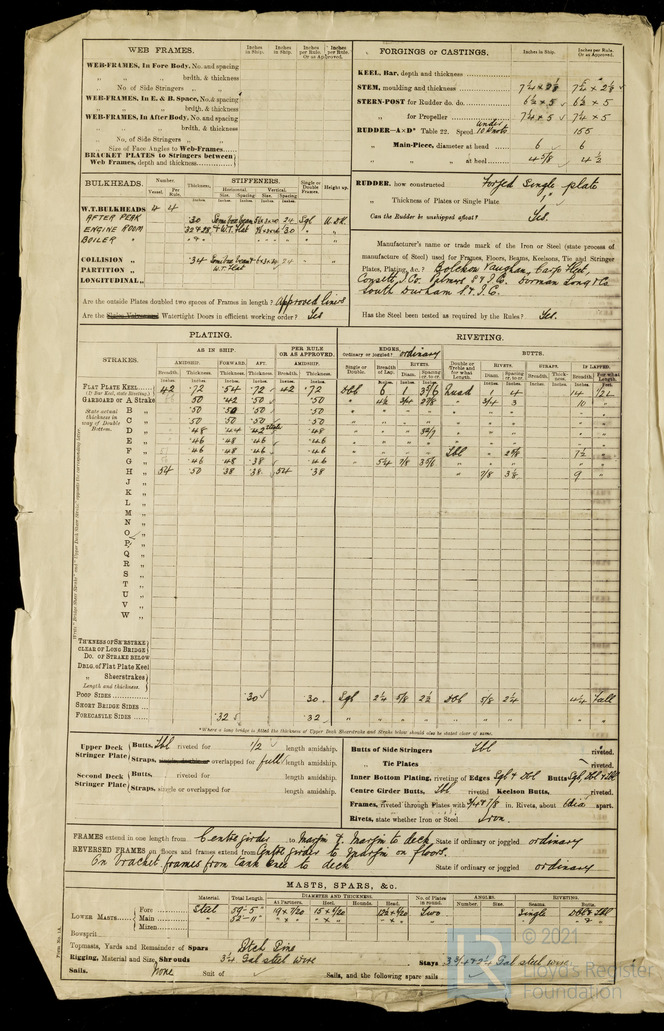 WEB FRAMES.
Inches in Ship. Inches in Ship. Inches per Rule. Inches per Rule. Or as Approved.
WEB-FRAMES, In Fore Body, No. and spacing
" " brdth. & thickness
No. of Side Stringers "
WEB-FRAMES, In E. & B. Space, No. & spacing
" " brdth. & thickness
WEB-FRAMES, In After Body, No. and spacing
" " brdth. & thickness
" No. of Side Stringers "
Size of Face Angles to Web-Frames
BRACKET PLATES to Stringers between Web Frames, depth and thickness
FORGINGS or CASTINGS.
Inches in Ship. Inches per Rule. Or as Approved.
KEEL, Bar, depth and thickness
STEM, moulding and thickness
STERN-POST for Rudder do. do. 6½ × 5 6½ × 5
" for Propeller 7¼ × 5 7¼ × 5
RUDDER—A×D* Table 22. Speed under 10 Knots 155
" Main-Piece, diameter at head 6 6
" " at heel 4½
BULKHEADS.
Number. Vessel. Per Rule. Thickness. STIFFENERS. Horizontal. Vertical. Size. Spacing. Size. Spacing. Single or Double Frames. Height up.
W.T.BULKHEADS 4 4
AFTER PEAK .30 24 Sgl U. Dk.
ENGINE ROOM & W.T. Flat 30
BOILER "
COLLISION " .34 24
PARTITION " W.T. Flat
LONGITUDINAL "
Are the outside Plates doubled two spaces of Frames in length? Approved liners
Are the Watertight Doors in efficient working order? Yes
RUDDER, how constructed Forged Single plate
" Thickness of Plates or Single Plate 1"
Can the Rudder be unshipped afloat? Yes.
Manufacturer's name or trade mark of the Iron or Steel (state process of manufacture of Steel) used for Frames, Floors, Beams, Keelsons, Tie and Stringer Plates, Plating, &c.? Bolckow Vaughan, Cargo Fleet,
Consett I. Co. Palmers S & I. Co. Dorman Long & Co
South Durham S & I. C.
Has the Steel been tested as required by the Rules? Yes.
PLATING.
STRAKES. AS IN SHIP. PER RULE OR AS APPROVED.
AMIDSHIP. FORWARD. AFT. AMIDSHIP.
Breadth. Thickness. Thickness. Thickness. Breadth. Thickness.
RIVETING.
EDGES. Ordinary or joggled? ordinary
BUTTS.
Single or Double. Breadth of Lap. RIVETS. Diam. Spacing cr. to cr. Double or Treble and for what Length. RIVETS. Diam. Spacing cr. to cr. STRAPS. Breadth. Thickness. IF LAPPED. Breadth. For what Length.
FLAT PLATE KEEL 42 .72 .54 .72 42 .72 Dbl 6 1 Quad 1 4 14 ½L
(If Bar Keel, state Riveting.)
GARBOARD or A Strake .50 .42 .50 .50 " 4½ ¾ " ¾ 3 10 "
State actual thickness in way of Double Bottom.
B " .50 .50 .50 .50
C " .50 .50 .50 .50
D " .48 .44 .42 .48
E " .46 .48 .46 .46
F " .46 .48 .46 .46 Tbl 7½
G " .46 .48 .38 .46 5¼ 7/8
H " 54 .50 .38 .38 54 .38 7/8 9
J "
K "
L "
M "
N "
O "
P "
Q "
R "
S "
T "
U "
V "
W "
THICKNESS OF SHEERSTRAKE CLEAR OF LONG BRIDGE
DO. OF STRAKE BELOW
DBLG. of Flat Plate Keel
" Sheerstrakes
Length and thickness.
POOP SIDES .30 .30 Sgl 2¼ 5/8 2½ Dbl 5/8 2¼ full
SHORT BRIDGE SIDES
FORECASTLE SIDES .32 .32
*Where a long bridge is fitted the thickness of Upper Deck Sheerstrake and Strake below should also be stated clear of same.
Upper Deck Stringer Plate Butts, Tbl riveted for ½ length amidship.
Straps, overlapped for full length amidship.
Second Deck Stringer Plate Butts, riveted for length amidship.
Straps, single or overlapped for length amidship.
Butts of Side Stringers Tbl riveted.
" Tie Plates riveted.
Inner Bottom Plating, riveting of Edges Sgl & Dbl Butts Sgl, Dbl & Tbl
Centre Girder Butts, Tbl riveted Keelson Butts, riveted.
Frames, riveted through Plates with ¾ & 7/8 in. Rivets, about 6dia apart.
Rivets, state whether Iron or Steel Iron.
FRAMES extend in one length from Centre girder to Margin & Margin to deck State if ordinary or joggled ordinary
REVERSED FRAMES on floors and frames extend from Centre girder to Margin on floors.
On bracket frames from tank knee to deck State if ordinary or joggled ordinary
MASTS, SPARS, &c.
Material. Total Length. DIAMETER AND THICKNESS. At Partners. Heel. Hounds. Head. No. of Plates in round. ANGLES. Number. Size. RIVETING. Seams. Butts.
LOWER MASTS Fore Steel 59'-5" 19 × 7/20 15 × 6/20 Two Single Dbl & Tbl
Main " 52'-11" " × " " × " " × " " " " "
Mizen
Bowsprit
Topmasts, Yards and Remainder of Spars Pitch Pine
Rigging, Material and Size, Shrouds 3¼ Gal steel wire Stays Gal steel wire.
Sails. None Suit of Sails, and the following spare sails
© 2021
Lloyd's Register
Foundation
LR